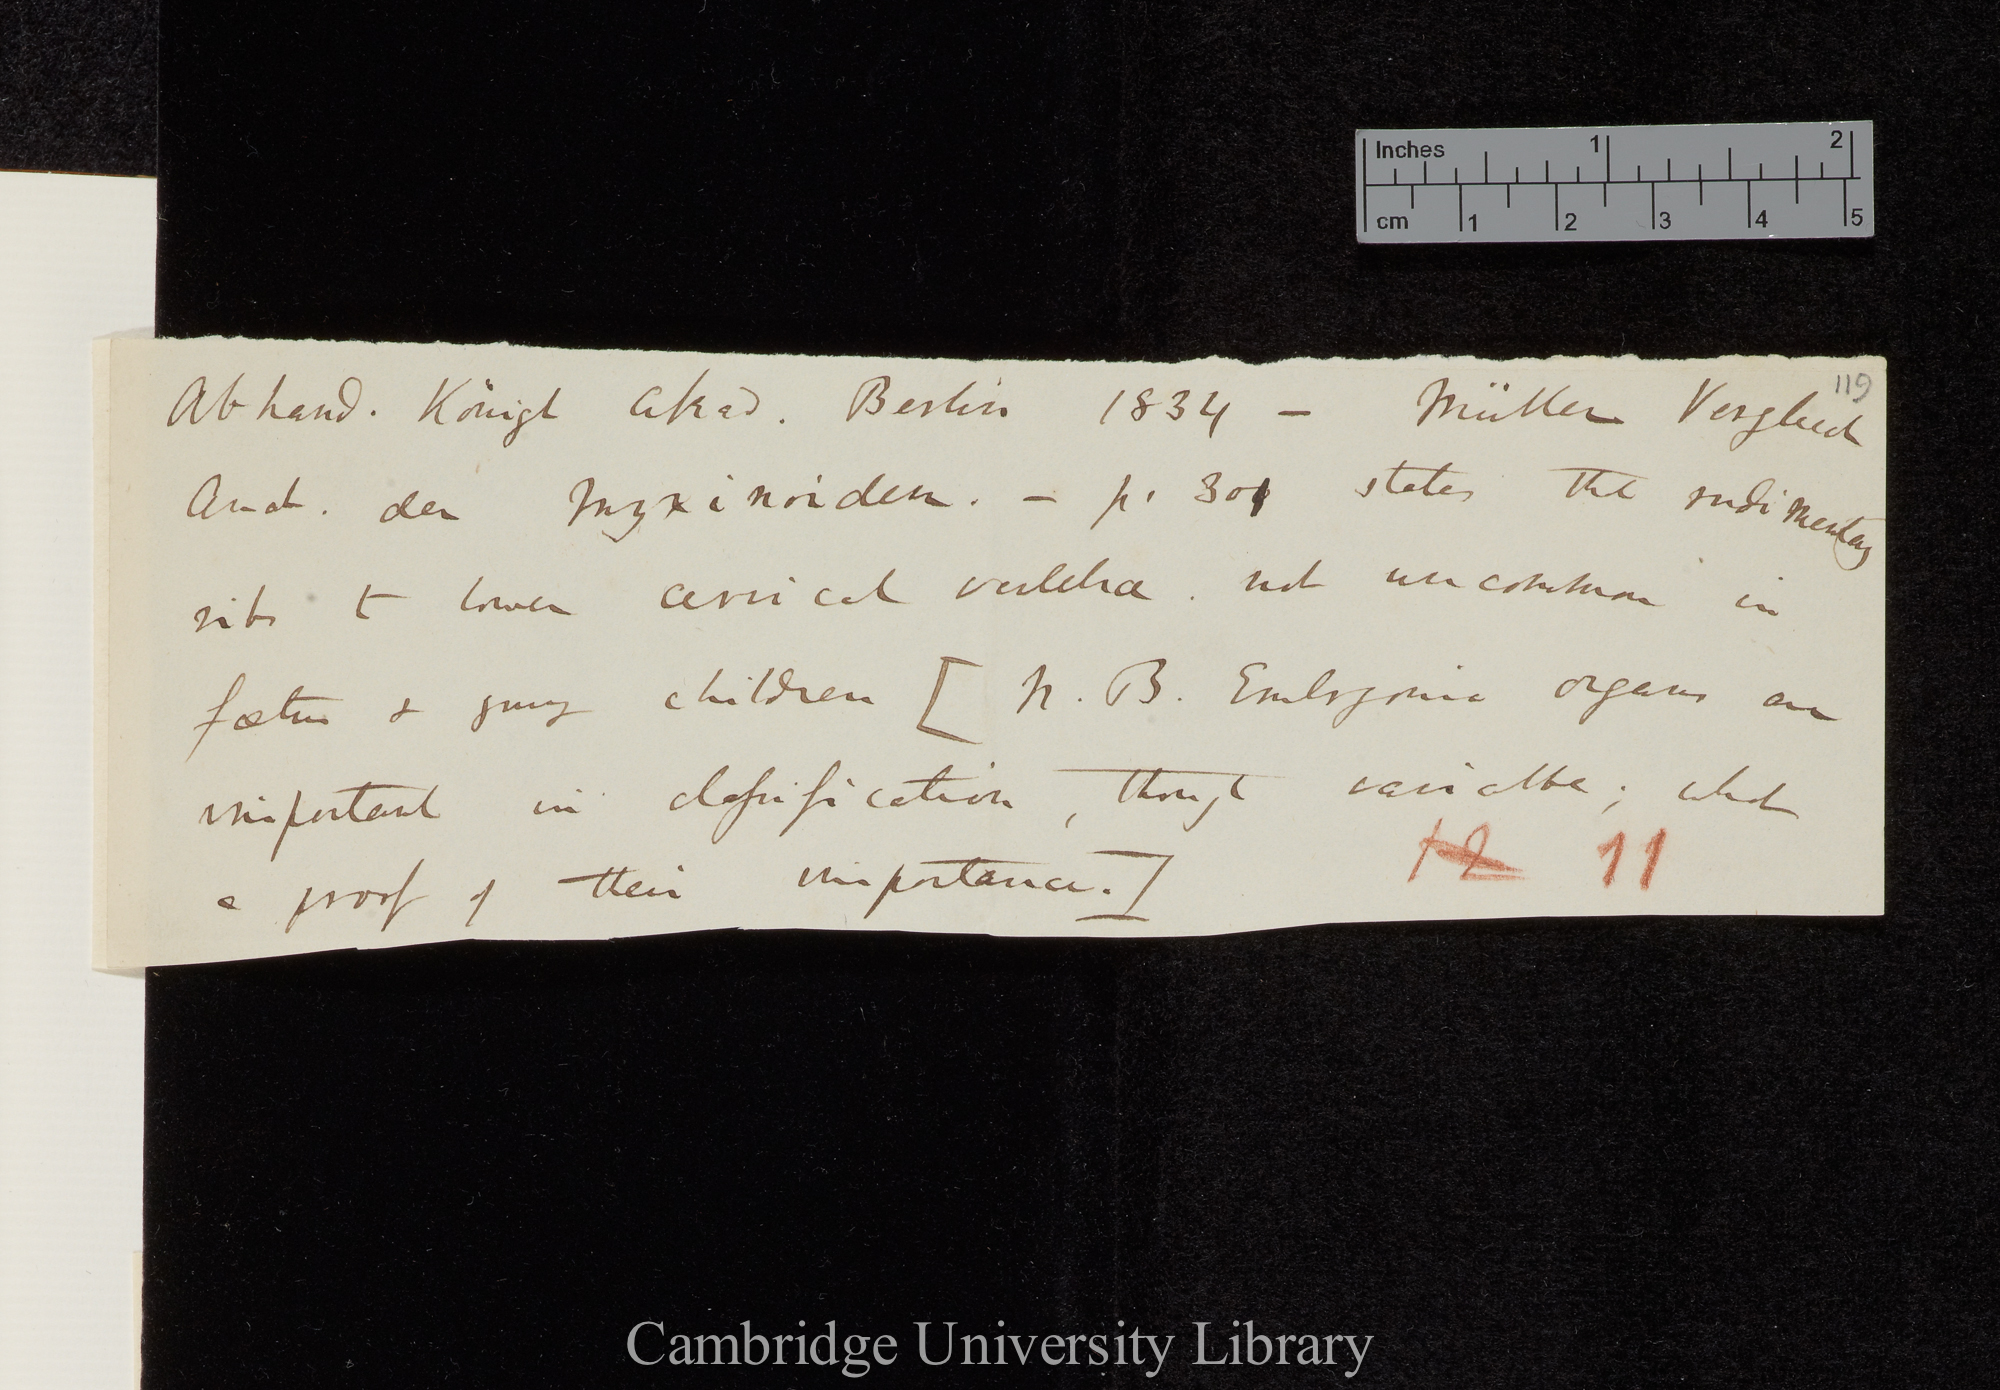 119
Abhand. Königl Akad. Berlin 1834 – Müller Vergleich
Anat. der Myxinoiden. – p. 301 states that rudimentary
ribs to lower cervical vertebræ. not uncommon in
fœtus & young children [N.B. Embryonic organs are
important in classification, though variable; what
a proof of their importance.]
12 11
Inches 1 2
cm 1 2 3 4 5
Cambridge University Library